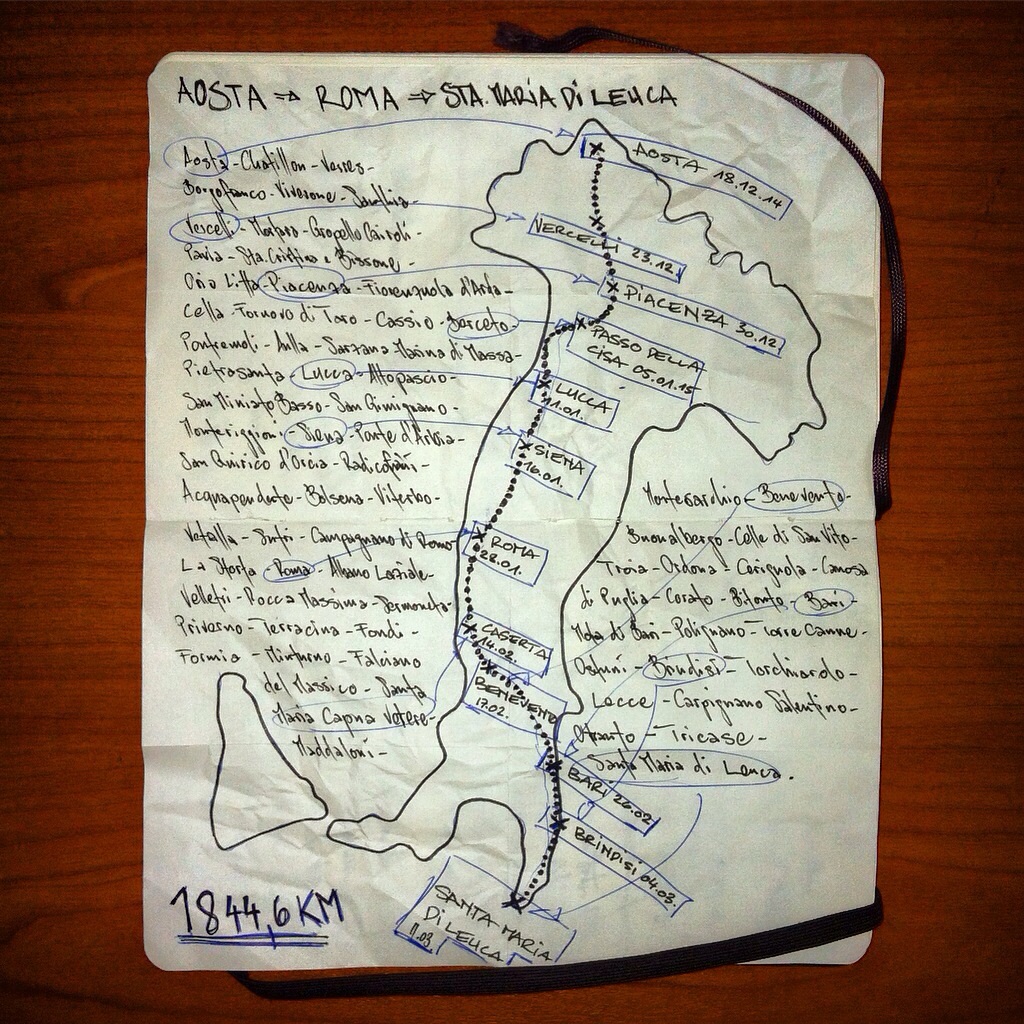 AOSTA ⇒ ROMA ⇒ STA. MARIA DI LEUCA
Aosta - Chatillon - Verres -
Borgofranco - Viverone - Santhia -
Vercelli - Mortara - Gropello Cairoli -
Pavia - Sta. Cristina e Bissone -
Orio Litta - Piacenza - Fiorenzuola d'Arda -
Cella - Fornovo di Taro - Cassio - Berceto -
Pontremoli - Aulla - Sarzana Marina di Massa -
Pietrasanta - Lucca - Altopascio -
San Miniato Basso - San Gimignano -
Monteriggioni - Siena - Ponte d'Arbia -
San Quirico d'Orcia - Radicofani -
Acquapendente - Bolsena - Viterbo -
Vetralla - Sutri - Campagnano di Roma
La Storta - Roma - Albano Laziale -
Velletri - Rocca Massima - Sermoneta -
Priverno - Terracina - Fondi -
Formia - Minturno - Falciano
del Massico - Santa
Maria Capua Vetere -
Maddaloni -
Montesarchio - Benevento -
Buonalbergo - Celle di San Vito -
Troia - Ordona - Cerignola - Canosa
di Puglia - Corato - Bitonto - Bari -
Mola di Bari - Polignano - Torre Canne -
Ostuni - Brindisi - Torchiarolo -
Lecce - Carpignano Salentino -
Otranto - Tricase -
Santa Maria di Leuca.
AOSTA 18.12.14
VERCELLI 23.12.
PIACENZA 30.12.
PASSO DELLA
CISA 05.01.15
LUCCA
11.01.
SIENA
16.01.
ROMA
28.01.
CASERTA
14.02.
BENEVENTO
17.02.
BARI 26.02
BRINDISI 04.03.
SANTA MARIA
DI LEUCA
11.03.
1844,6 KM